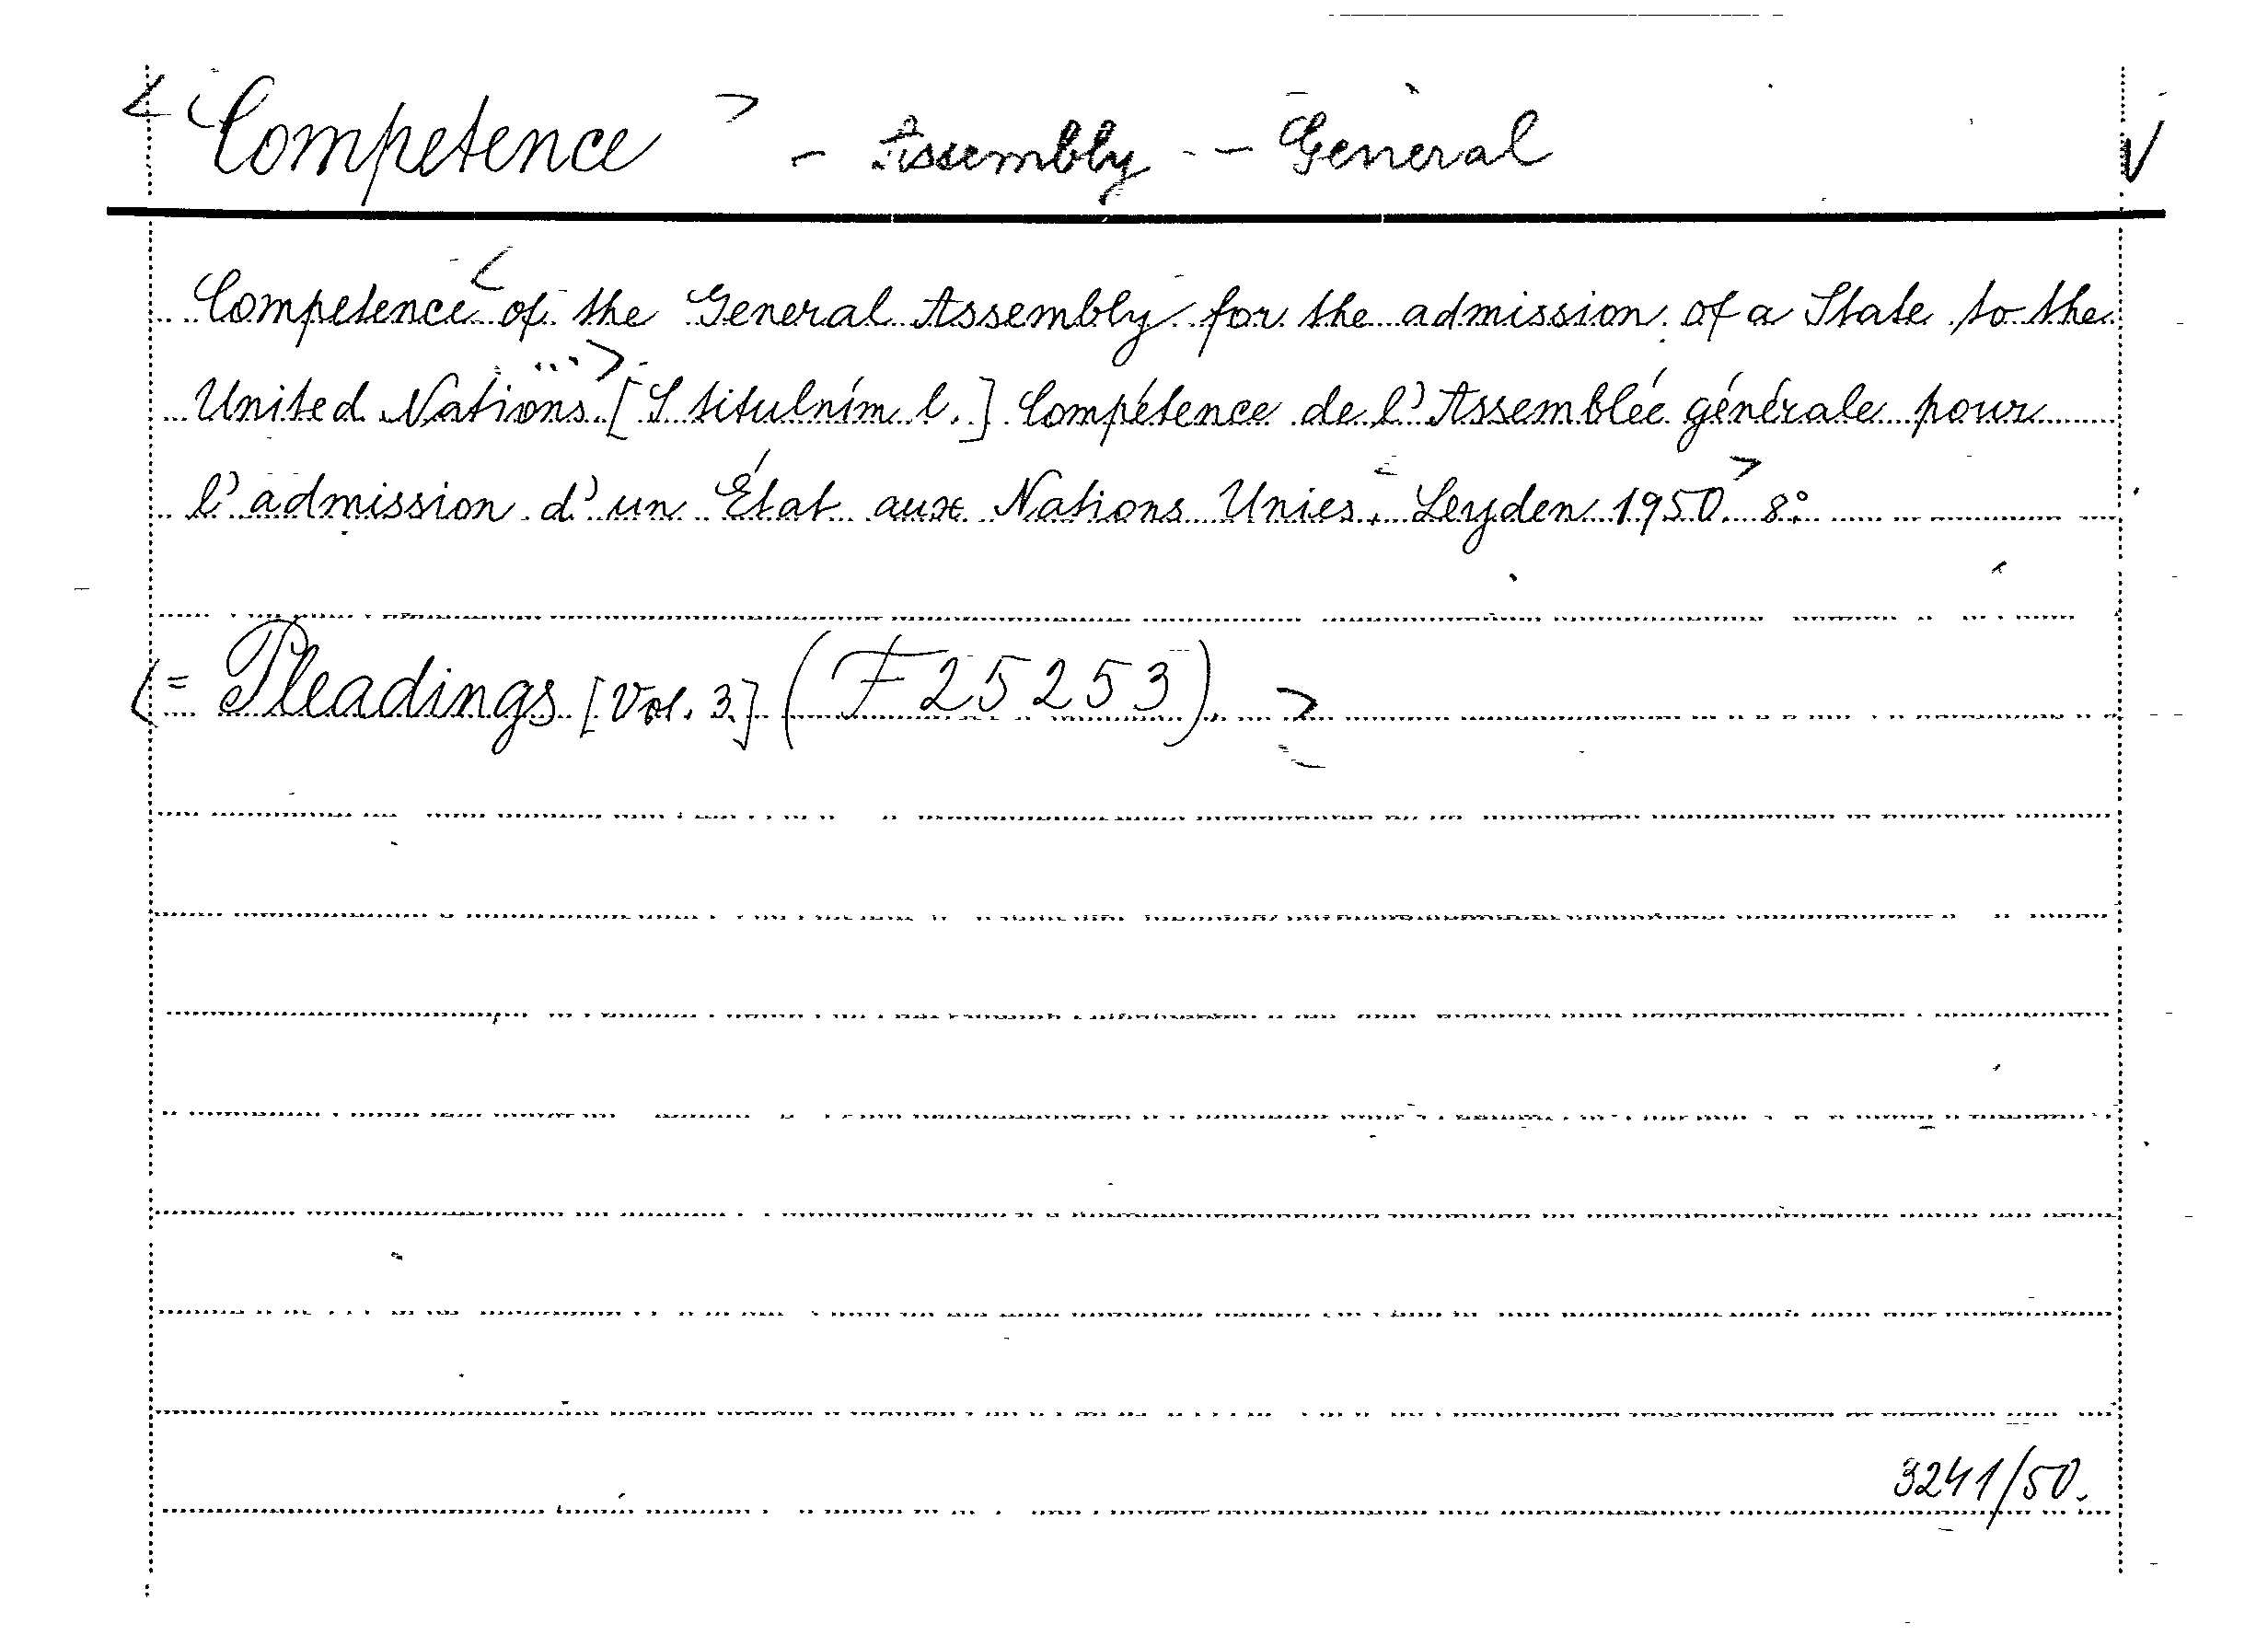 < Competence > - Assembly -- General V
Competence < of the General Assembly for the admission of a State to the
United Nations ... > [S titulním l.] Compétence de l'Assemblée générale pour
l'admission d'un État aux Nations Unies. < Leyden 1950 > 8°
<= Pleadings [Vol. 3.] (F 25253). >
3241/50.